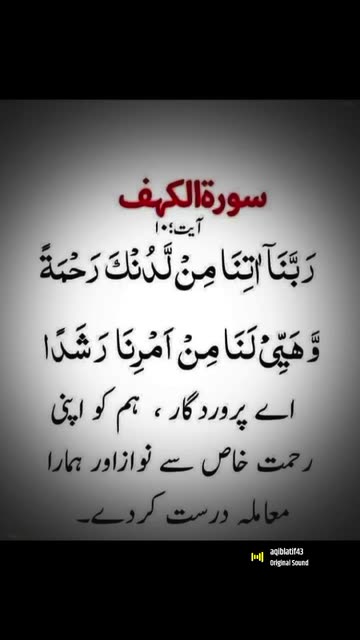 سورة الکہف
آیت:۱۰
رَبَّنَآ اٰتِنَا مِنْ لَّدُنْكَ رَحْمَةً
وَّهَيِّئْ لَنَا مِنْ اَمْرِنَا رَشَدًا
اے پروردگار ، ہم کو اپنی
رحمت خاص سے نواز اور ہمارا
معاملہ درست کر دے۔
aqiblatif43
Original Sound